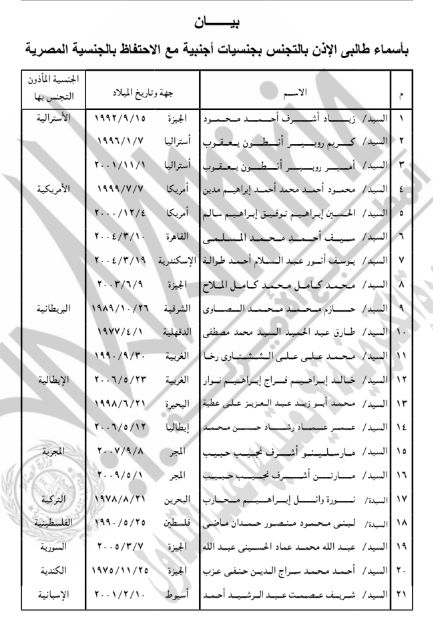 بيـــــان
بأسماء طالبى الإذن بالتجنس بجنسيات أجنبية مع الاحتفاظ بالجنسية المصرية
م الاســـم جهة وتاريخ الميلاد الجنسية المأذون التجنس بها
١ السيد/ زيـاد أشـرف أحـمـد محمـود الجيزة ١٩٩٢/٩/١٥ الأسترالية
٢ السيد/ كـريم روبـيـر أنـطـون يـعـقـوب أستراليا ١٩٩٦/١/٧
٣ السيد/ أمـيـر روبـيـر أنـطـون يـعـقـوب أستراليا ٢٠٠١/١١/١
٤ السيد/ محمود أحمد محمد أحمد إبراهيم مدين أمريكا ١٩٩٩/٧/٧ الأمريكية
٥ السيد/ الحسين إبراهيم توفيق إبراهيم سالم أمريكا ٢٠٠٠/١٢/٤
٦ السيد/ سـيـف أحـمـد محـمـد المسلمى القاهرة ٢٠٠٤/٣/١٠
٧ السيد/ يوسف أنور عبد السلام أحمد طوالة الإسكندرية ٢٠٠٤/٣/١٩
٨ السيد/ محمد كامل محمد كامل الملاح الجيزة ٢٠٠٣/٦/٩
٩ السيد/ حـازم محـمـد محـمـد الـصـاوى الشرقية ١٩٨٩/١٠/٢٦ البريطانية
١٠ السيد/ طارق عبد الحميد السيد محمد مصطفى الدقهلية ١٩٧٧/٤/١
١١ السيد/ محمد على على الششتاوى رخا الغربية ١٩٩٠/٩/٣٠
١٢ السيد/ خالد إبراهيم فراج إبراهيم نوار الغربية ٢٠٠٦/٥/٢٣ الإيطالية
١٣ السيد/ محمد أبو زيد عبد العزيز على عطية البحيرة ١٩٩٨/٦/٢١
١٤ السيد/ عمر عماد رشاد حسن محمد إيطاليا ٢٠٠٦/٥/١٢
١٥ السيد/ مارسلينو أشرف نجيب حبيب المجر ٢٠٠٧/٩/٨ المجرية
١٦ السيد/ مارتن أشرف نجيب حبيب المجر ٢٠٠٩/٥/١
١٧ السيدة/ نورة وائل إبراهيم محارب البحرين ١٩٧٨/٨/٢١ التركية
١٨ السيدة/ لبنى محمود منصور حمدان ماضى فلسطين ١٩٩٠/٥/٢٥ الفلسطينية
١٩ السيد/ عبد الله محمد عماد الحسينى عبد الله الجيزة ٢٠٠٥/٣/٧ السورية
٢٠ السيد/ أحمد محمد سراج الدين حنفى عزب الجيزة ١٩٧٥/١١/٢٥ الكندية
٢١ السيد/ شريف عصمت عبد الرشيد أحمد أسيوط ٢٠٠١/٢/١٠ الإسبانية